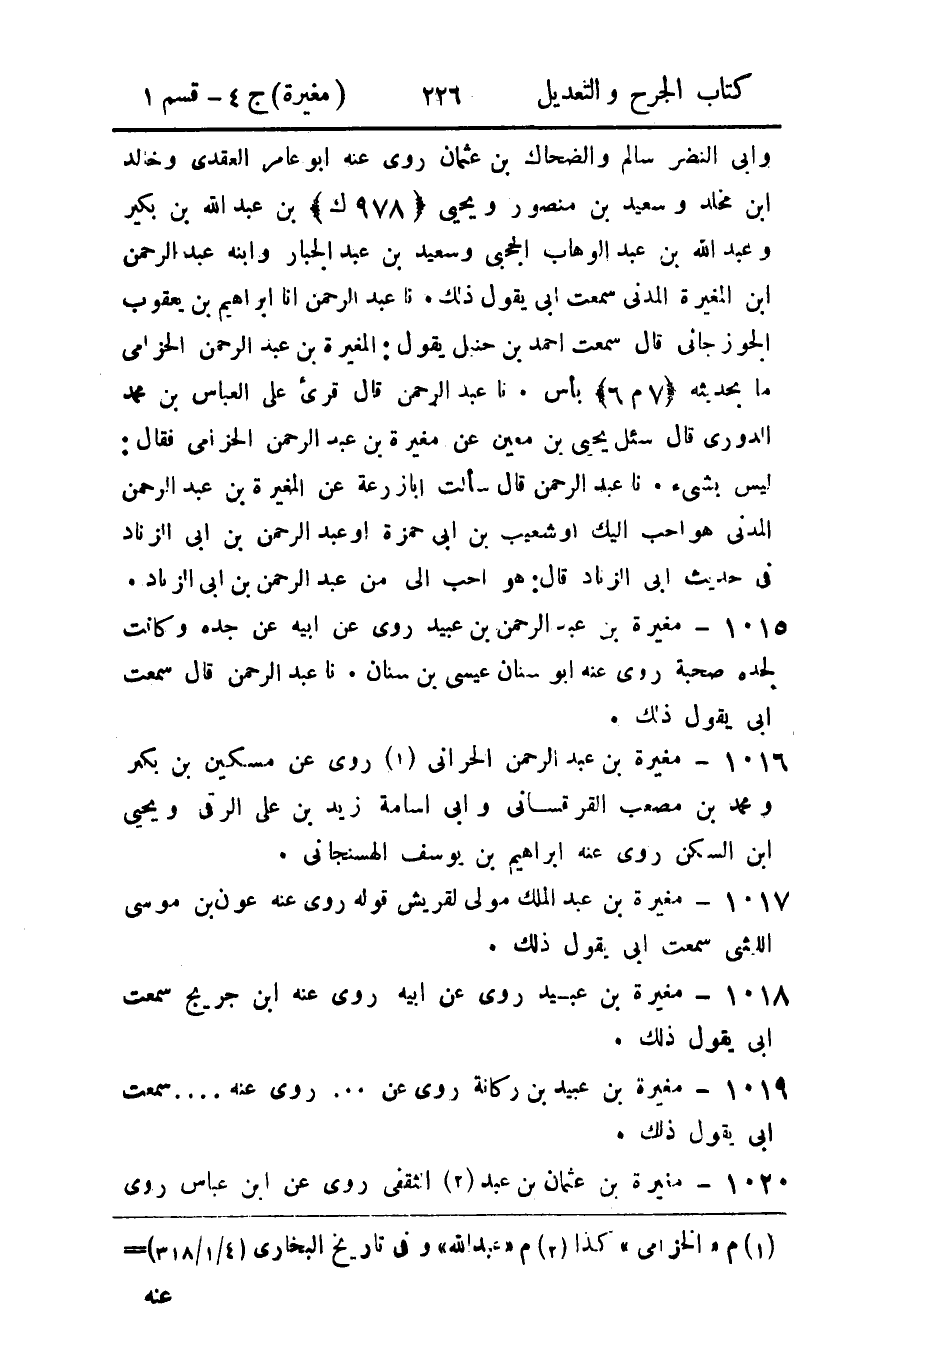 كتاب الجرح والتعديل ٢٢٦ (مغيرة) ج ٤ - قسم ١
وابى النضر سالم والضحاك بن عثمان روى عنه ابو عامر العقدى وخالد
ابن مخلد وسعيد بن منصور ويحيى ﴿٩٧٨ ك﴾ بن عبد الله بن بكير
وعبد الله بن عبد الوهاب الحجبى وسعيد بن عبد الجبار وابنه عبد الرحمن
ابن المغيرة المدنى سمعت ابى يقول ذلك . نا عبد الرحمن انا ابراهيم بن يعقوب
الجوزجانى قال سمعت احمد بن حنبل يقول : المغيرة بن عبد الرحمن الحزامى
ما بحديثه ﴿٧ م ٦﴾ بأس . نا عبد الرحمن قال قرئ على العباس بن محمد
الدورى قال سئل يحيى بن معين عن مغيرة بن عبد الرحمن الحزامى فقال :
ليس بشىء . نا عبد الرحمن قال سألت ابا زرعة عن المغيرة بن عبد الرحمن
المدنى هو احب اليك او شعيب بن ابى حمزة او عبد الرحمن بن ابى الزناد
فى حديث ابى الزناد قال : هو احب الى من عبد الرحمن بن ابى الزناد .
١٠١٥ - مغيرة بن عبد الرحمن بن عبيد روى عن ابيه عن جده وكانت
لجده صحبة روى عنه ابو سنان عيسى بن سنان . نا عبد الرحمن قال سمعت
ابى يقول ذلك .
١٠١٦ - مغيرة بن عبد الرحمن الحرانى (١) روى عن مسكين بن بكير
ومحمد بن مصعب القرقسانى وابى اسامة زيد بن على الرقى ويحيى
ابن السكن روى عنه ابراهيم بن يوسف الهسنجانى .
١٠١٧ - مغيرة بن عبد الملك مولى لقريش قوله روى عنه عون بن موسى
الليثى سمعت ابى يقول ذلك .
١٠١٨ - مغيرة بن عبيد روى عن ابيه روى عنه ابن جريج سمعت
ابى يقول ذلك .
١٠١٩ - مغيرة بن عبيد بن ركانة روى عن ... روى عنه .... سمعت
ابى يقول ذلك .
١٠٢٠ - مغيرة بن عثمان بن عبد (٢) الثقفى روى عن ابن عباس روى
(١) م «الحزامى» كذا (٢) م «عبد الله» و فى تاريخ البخارى (٤/١/٣١٨)=
عنه